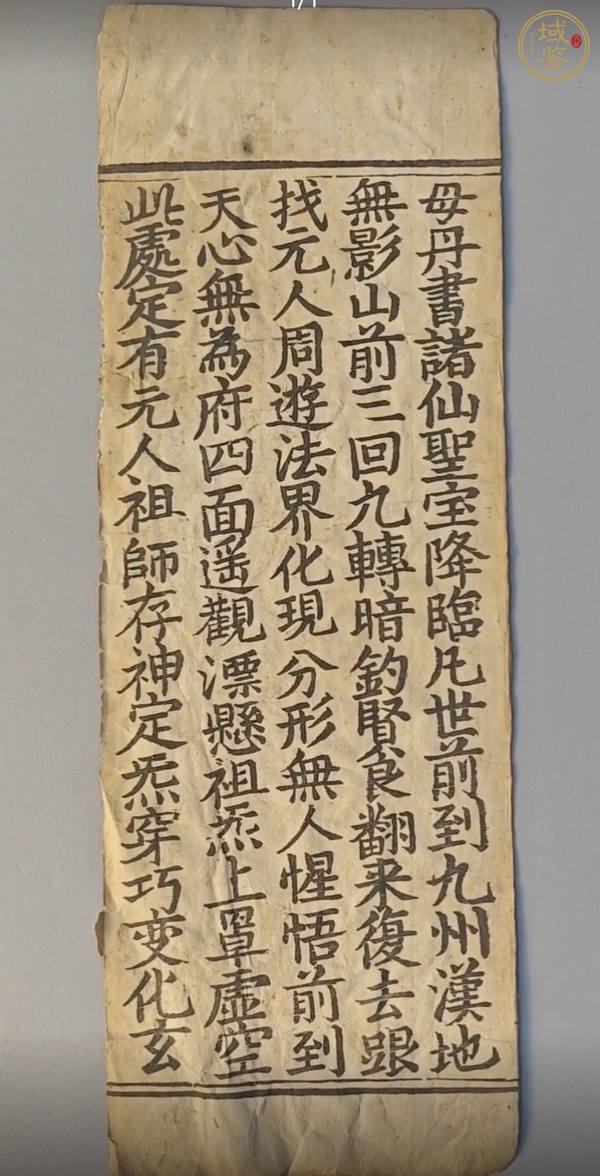 毋丹書諸仙聖宝降臨凡世前到九州漢地
無影山前三回九轉暗釣賢良翻来復去跟
找元人周遊法界化現分形無人惺悟前到
天心無為府四面遥觀漂懸祖炁上罩虛空
此處定有元人祖師存神定炁穿巧变化玄
域鉴
1/1